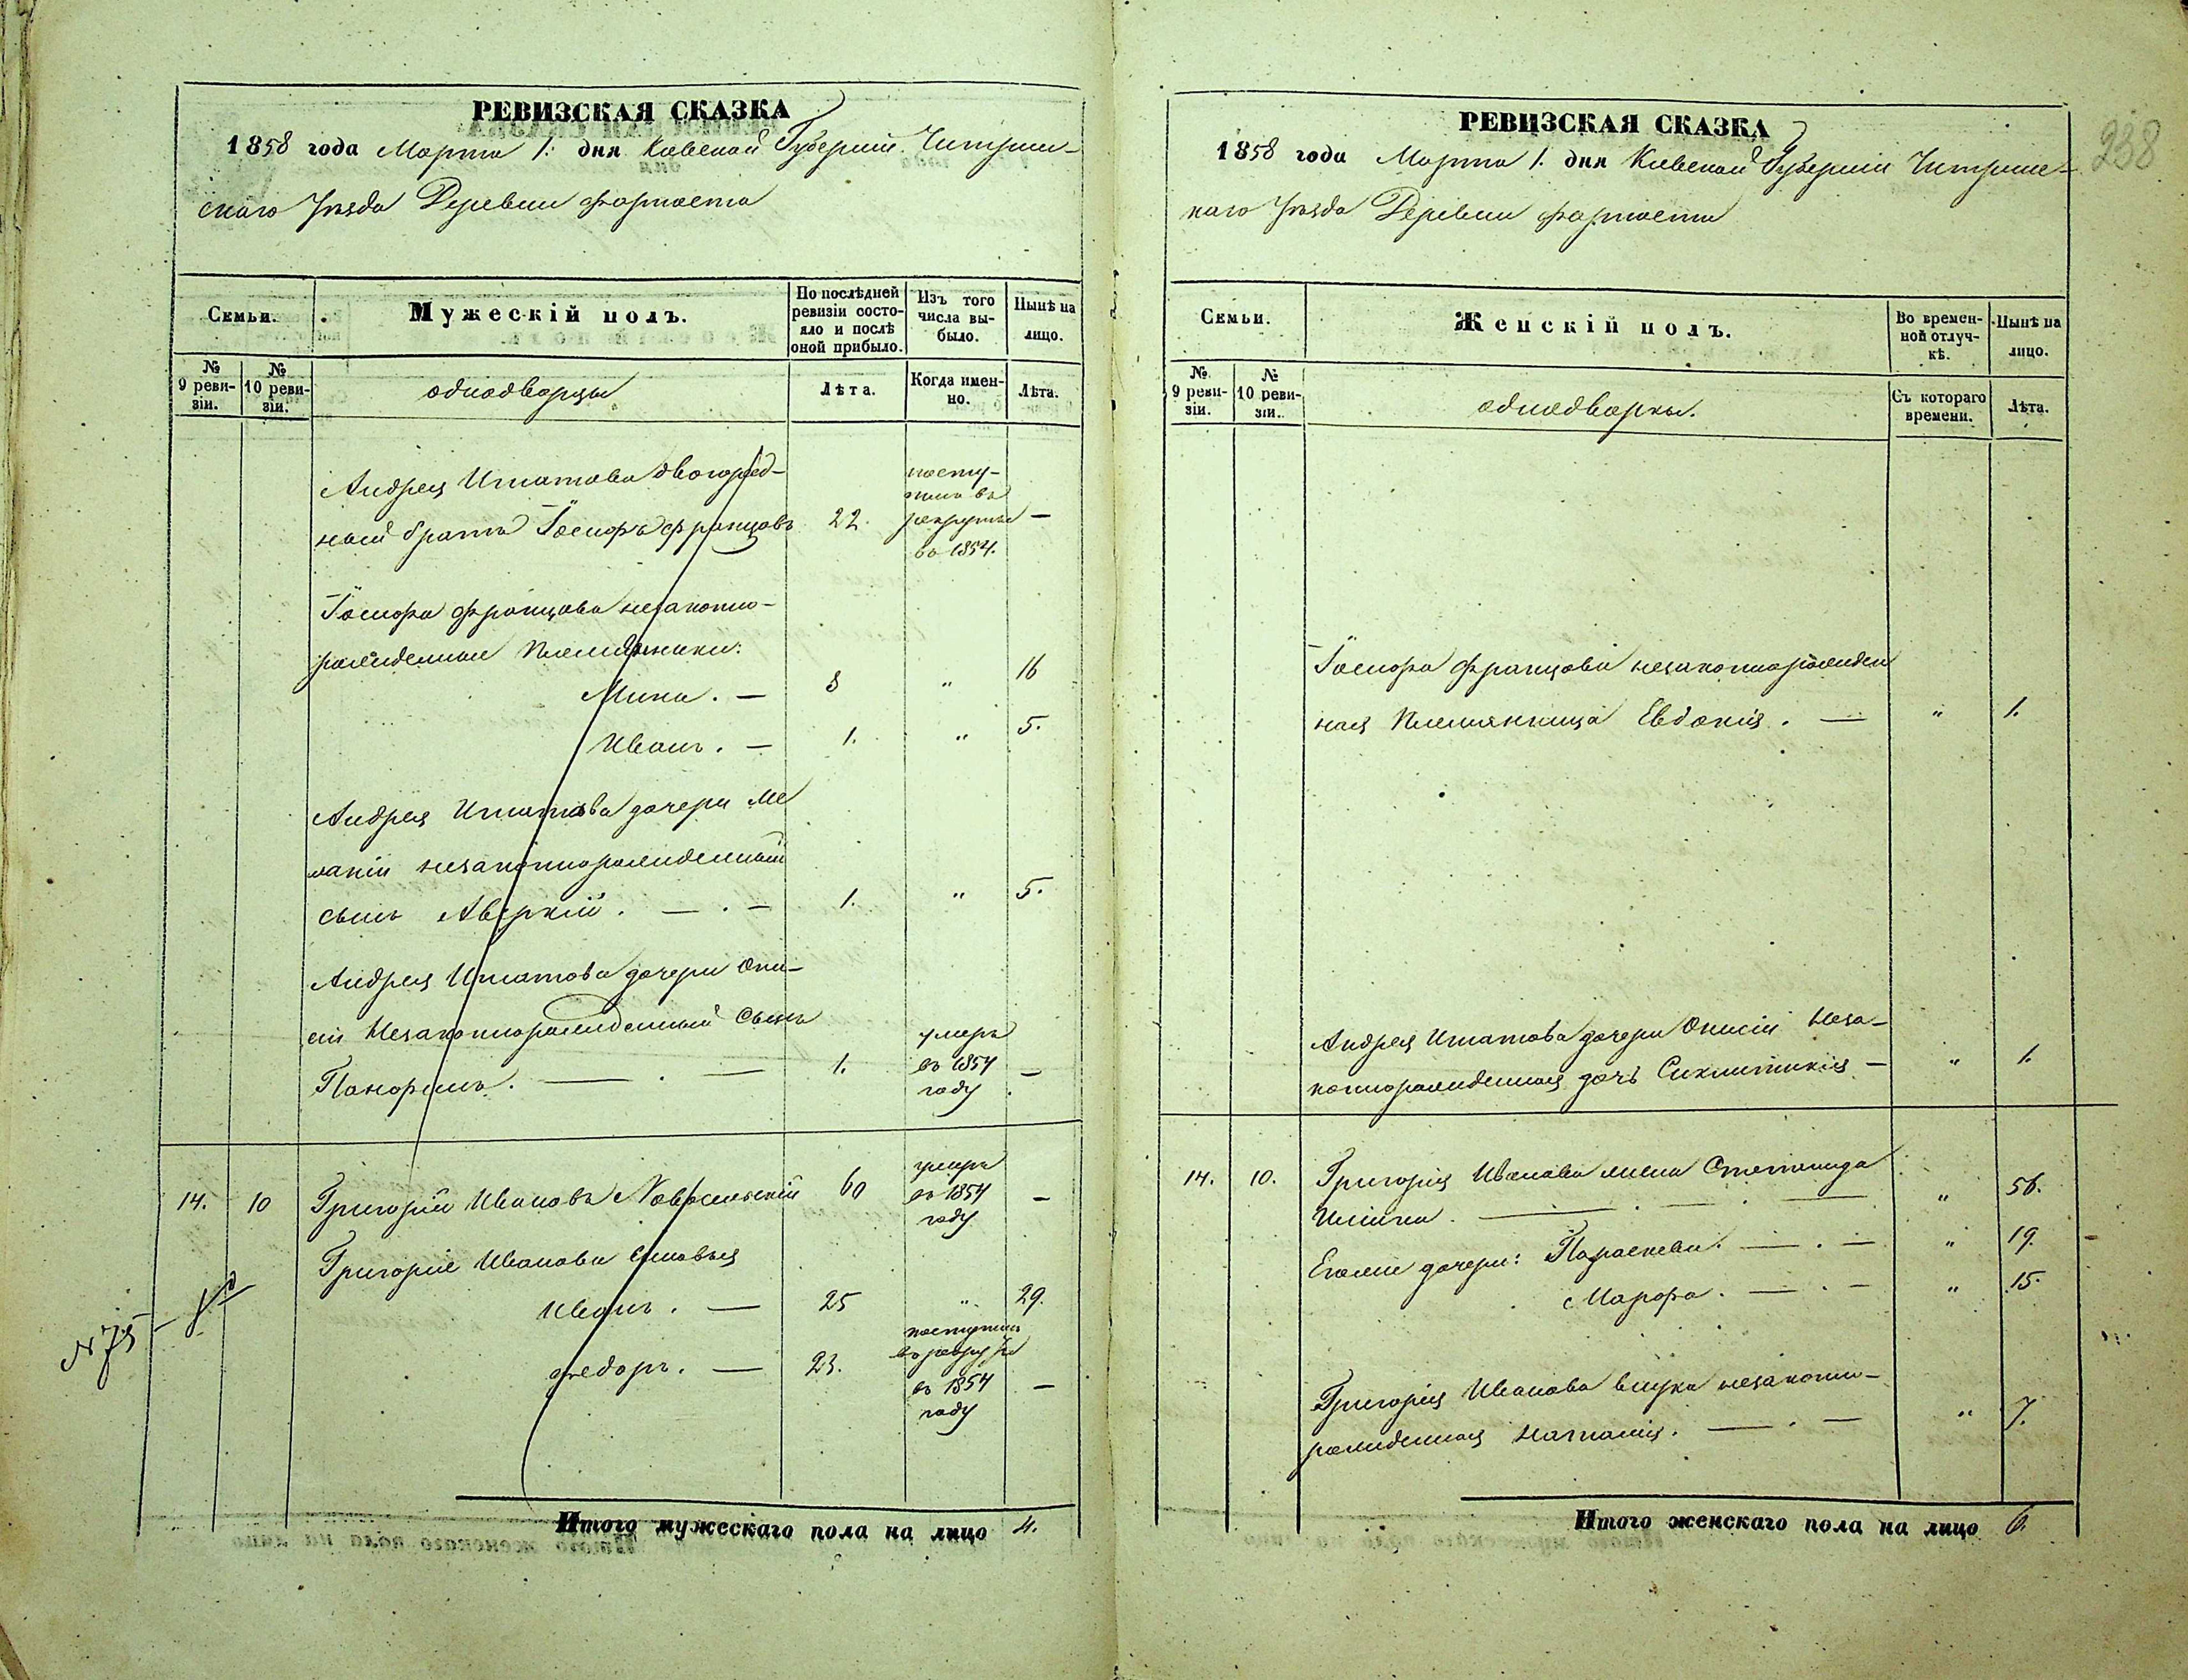 РЕВИЗСКАЯ СКАЗКА
1858 года Марта 1. дня Киевской Губерніи Чигрин-
скаго Уѣзда Деревни
Семьи.
Мужескій полъ.
По послѣдней ревизіи состояло и послѣ оной прибыло.
Изъ того числа выбыло.
Нынѣ на лицо.
№ 9 ревизіи.
№ 10 ревизіи.
однодворцы
Лѣта.
Когда именно.
Лѣта.
Андрея Игнатова двоюрод-
ный братъ Іосифъ Францовъ 22. посту-
пилъ въ
рекруты —
въ 1854.
Іосифа Францова незаконно-
рожденные племянники:
Мина. — 8 " 16
Иванъ. — 1. " 5.
Андрея Игнатова дочери Ме
ланіи незаконнорожденный
сынъ Аверкій. — . — 1. " 5.
Андрея Игнатова дочери Они-
сіи Незаконнорожденный Сынъ
умеръ
1. въ 1854 —
году
14. 10 Григорій Ивановъ 60 умеръ
въ 1854 —
году
Григорія Иванова сыновья
Иванъ. — 25 " 29.
Федоръ. — 23. поступилъ
въ рекруты
въ 1854 —
году
№ 75
Итого мужескаго пола на лицо 4.
238
РЕВИЗСКАЯ СКАЗКА
1858 года Марта 1. дня Киевской Губерніи Чигринс-
каго Уѣзда Деревни
Семьи.
Женскій полъ.
Во временной отлучкѣ.
Нынѣ на лицо.
№ 9 ревизіи.
№ 10 ревизіи.
однодворки.
Съ котораго времени.
Лѣта.
Іосифа Францова незаконнорожден
ная племянница Евдокія. — " 1.
Андрея Игнатова дочери Онисіи Неза-
коннорожденная дочь Синклитикія — " 1.
14. 10. Григорія Иванова жена Степанида
— . — " 56.
Егоже дочери: Параскева. — . — " 19.
Марфа. — . — " 15.
Григорія Иванова внука незаконно-
рожденная Наталія. — . — " 7.
Итого женскаго пола на лицо 6.